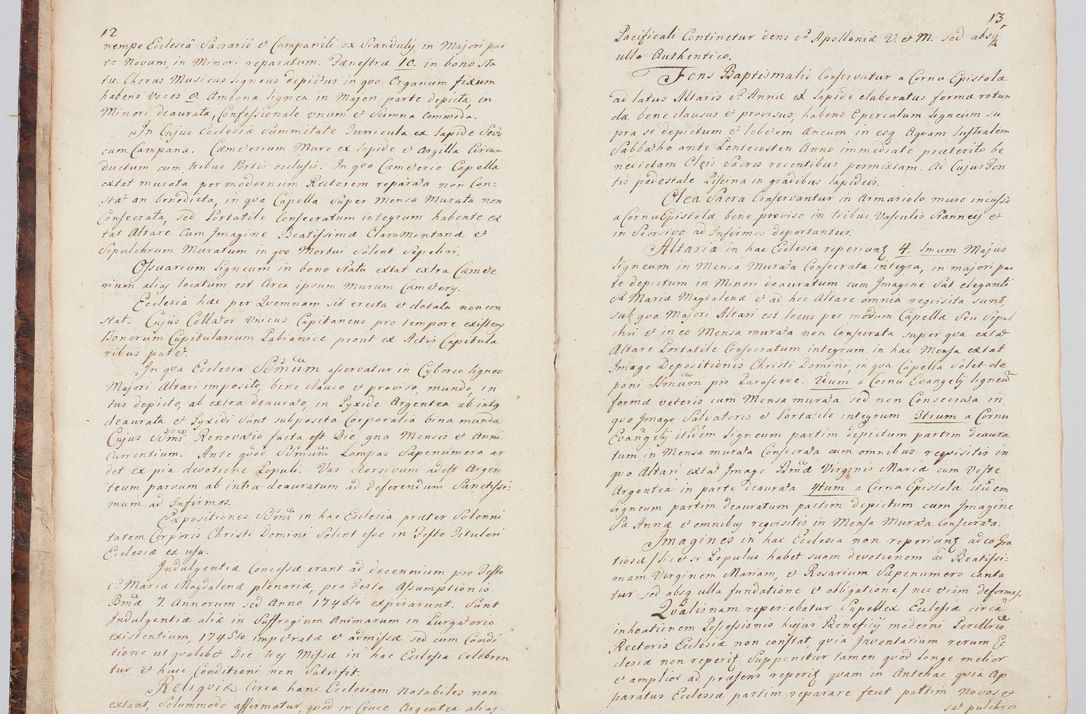 12
nempe Ecclesiâ Sacrario et Campanili ex Scandulis in Majori par
te Novum, in Minori reparatum. Fenestræ 10. in bono sta
tu. Chorus Musicus ligneus depictus in quo Organum fixum
habens voces 9. Ambona lignea in Majori parte depicta, in
Minori deaurata, Confessionale vnum et Scamna commoda.
In Cujus Ecclesiæ Summitate Turricula ex lapide
cum Campana. Cæmeterium Muro ex lapide et Argilla Circu
ductum cum tribus Portis occlusis. In quo Cæmeterio Capella
extat murata per modernum Rectorem reparata non Con
stat an benedicta, in qua Capella Super Mensa Murata non
Consecrata, sed Portatile Consecratum integrum habente ex
tat Altare Cum Imagine Beatissimæ ClaroMontanæ et
Sepulchrum Muratum in quo Mortui Solent Sepeliri.
Ossuarium Ligneum in bono statu extat extra Cæmete
rium alias locatum est Circa ipsum Murum Cæmetery.
Ecclesia hæc per Quemnam sit erecta et dotata non con
stat. Cujus Collator Unicus Capitaneus pro tempore existens
Bonorum Capitularium Pabianice prout ex Actis Capitula
ribus patet.
In qua Ecclesia SSmum asservatur in Cyborio ligneo
Majori Altari imposito, bene clauso et proviso, mundo, in
tus depicto, ab extra deaurato, in Pyxide Argentea ab intus
deaurata et Pyxidi sunt subposita Corporalia bina munda
Cujus SSmi Renovatio facta est Die 9na Mensis et Anni
Currentium. Ante quod SSmum Lampas Sæpenumero ar
det ex pia devotione Populi. Vas Rersivum adest Argen
teum parvum ab intra deauratum ad deferendum Sanctissi
mum ad Infirmos.
Expositiones SSmi in hac Ecclesia præter Solenni
tatem Corporis Christi Domini Solent esse in Festo Titulari
Ecclesiæ ex usu.
Indulgentiæ Concessæ erant ad decennium pro Festo
S. Mariæ Magdalenæ plenariæ, pro Festo Assumptionis
Bmæ 7. Annorum sed Anno 1746to expirarunt. Sunt
Indulgentiæ aliæ in Suffragium Animarum in Purgatorio
existentium, 1745to impetratæ et admissæ sed cum Condi
tione ut quolibet Die tres Missæ in hac Ecclesia Celebren
tur et huic Conditioni non Satisfit.
Reliquiæ Circa hanc Ecclesiam Notabiles non
extant, Solummodo affirmatur, quod in Cruce Argentea alias
13
Pacificali Continetur dens S. Apolloniæ V. et M. sed absq
ullo Authentico.
Fons Baptismalis Conservatur a Cornu Epistolæ
ad latus Altaris S. Annæ ex lapide elaboratus formæ rotun
dæ bene clausus et provisus, habens Operculum ligneum su
pra se depictum et lebetem Æneum in eoq Aquam lustralem
Sabbatho ante Pentecosten Anno immediate præterito be
nedictam Oleis Sacris recentibus permixtam. Ad Cujus Fon
tis pedestale Piscina in gradibus lapideis.
Olea Sacra Conservantur in Armariolo muro incusso
a Cornu Epistolæ bene proviso in tribus Vasculis Stanneis et
in Seorsivo ad Infirmos deportantur.
Altaria in hac Ecclesia reperiunt 4. 1mum Majus
ligneum in Mensa Murata Consecrata integra, in majori par
te depictum in Minori deauratum cum Imagine Sat eleganti
S. Mariæ Magdalenæ et ad hoc Altare omnia reqvisita sunt,
sub quo Majori Altari est locus per modum Capellæ seu Sepul
chri et in eo Mensa murata non Consecrata super qua extat
Altare Portatile Consecratum integrum in hac Mensa extat
Imago Depositionis Christi Domini, in qua Capella solet de
poni SSmum pro Parasceve. 2dum a Cornu Evangely ligneum
formæ veteris cum Mensa murata sed non Consecrata in
quo Imago Salvatoris et Portatile integrum 3tium a Cornu
Evangely itidem ligneum partim depictum partim deaura
tum in Mensa murata Consecrata cum omnibus requisitis in
quo Altari extat Imago Bmæ Virginis Mariæ cum Veste
Argentea in parte deaurata 4tum a Cornu Epistolæ itidem
ligneum partim deauratum partim depictum cum Imagine
Sæ Annæ et omnibus reqvisitis in Mensa Murata Consecrata.
Imagines in hac Ecclesia non reperiunt adeo Gra
tiosæ /:licet si Populus habet suam devotionem ad Beatissi
mam Virginem Mariam, et Rosarium Sæpenumero canta
tur sed absq ulla fundatione et obligatione/ nec etiam deformes.
Qualisnam reperiebatur Supellex Ecclesiæ circa
inhoationem Possessionis hujus Beneficy moderni Perillris
Rectoris Ecclesiæ non constat, quia Inventarium rerum Ec
clesiæ non reperit Supponitur tamen quod longe melior
et amplior ad præsens reperit quam in Antehac quia Ap
paratus Ecclesiæ partim reparare fecit partim Novos et
sat pulchros